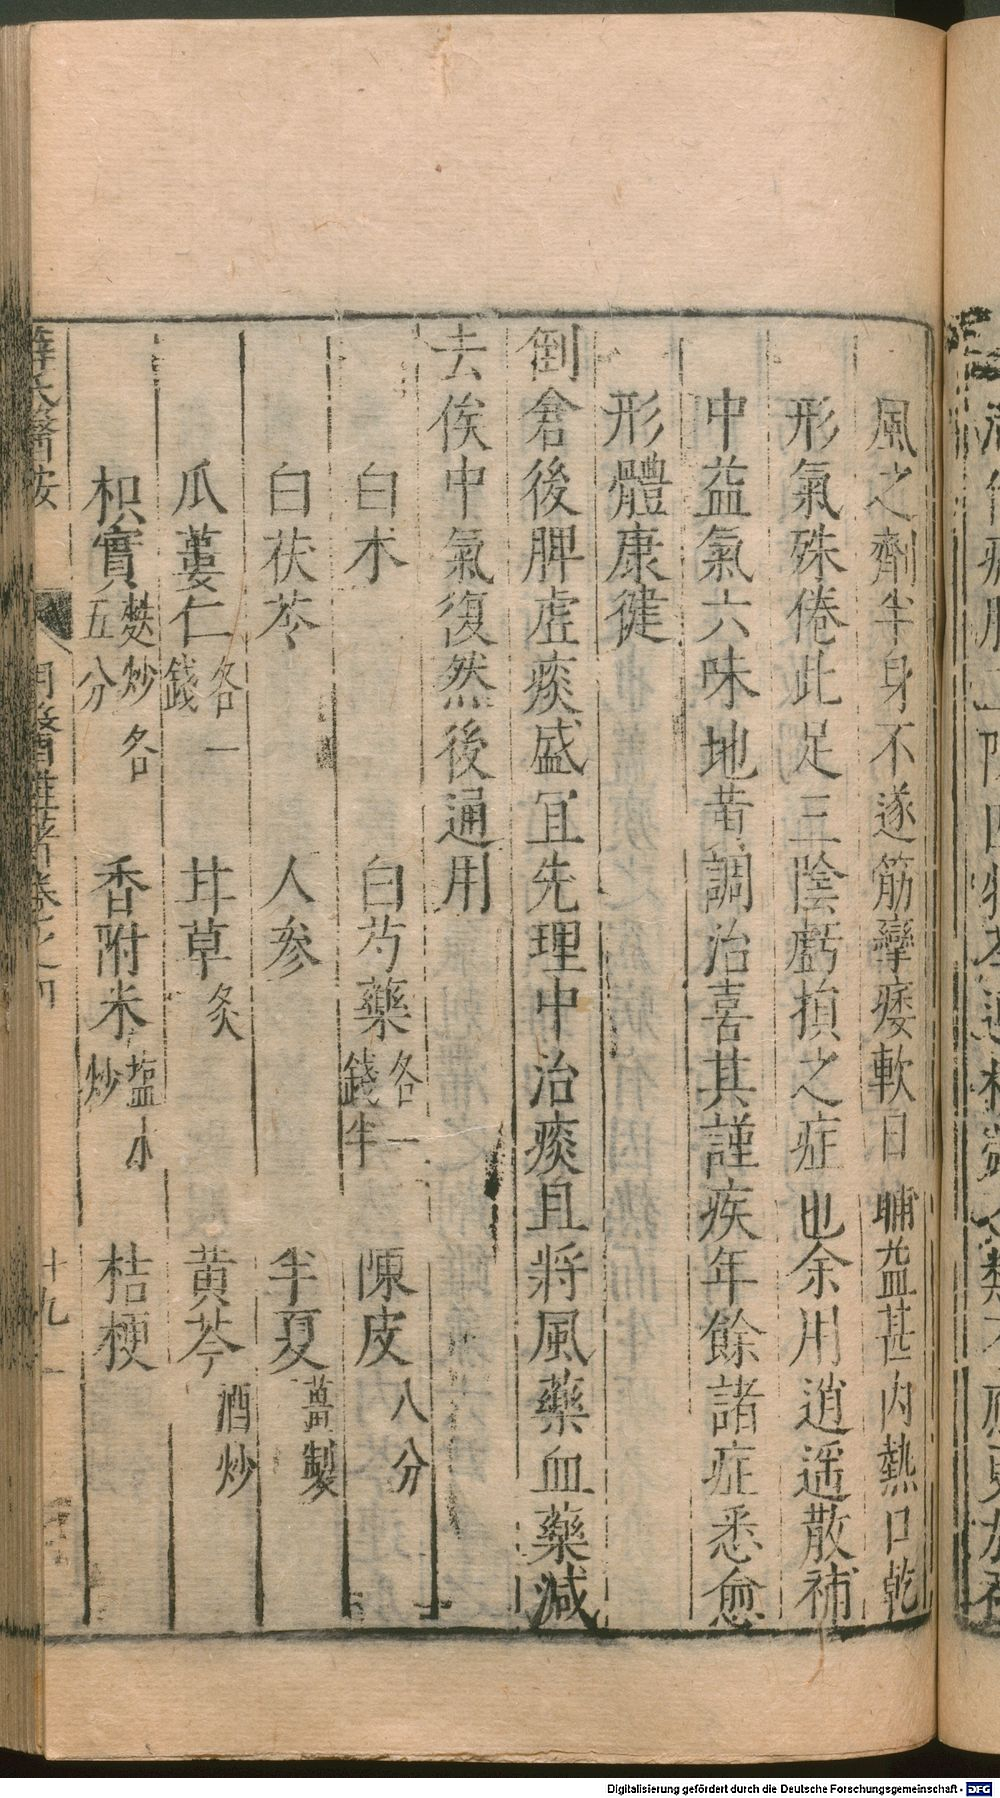 風之劑半身不遂筋攣痿軟日晡益甚内熱口乾
形氣殊倦此足三陰虧損之症也余用逍遥散補
中益氣六味地黄調治喜其謹疾年餘諸症悉愈
形體康健
倒倉後脾虛痰盛宜先理中治痰且將風藥血藥減
去俟中氣復然後通用
白朮 白芍藥各一錢半 陳皮八分
白茯苓 人參 半夏薑製
瓜蔞仁各一錢 甘草炙 黄芩酒炒
枳實麩炒各五分 香附米塩水炒 桔梗
薛氏醫按 明醫雜著卷之四 十九
Digitalisierung gefördert durch die Deutsche Forschungsgemeinschaft - DFG